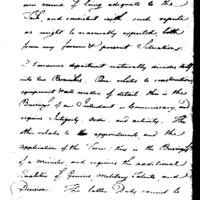 own mind of being adequate to the
Task, and consistent with such respects
as might be reasonably expected, both
from my former & present Situations.
department naturally divides itself
into two Branches. One relates to construction
equipment and matters of detail: this is the
Business of an Intendant or Commissary, and
requires Integrity, Order and activity. The
other relates to the appointments and the
application of the Force: this is the Business
of a minister and requires the additional
Qualities of Genius, Military Talents, and
Decision. The latter Duty cannot be